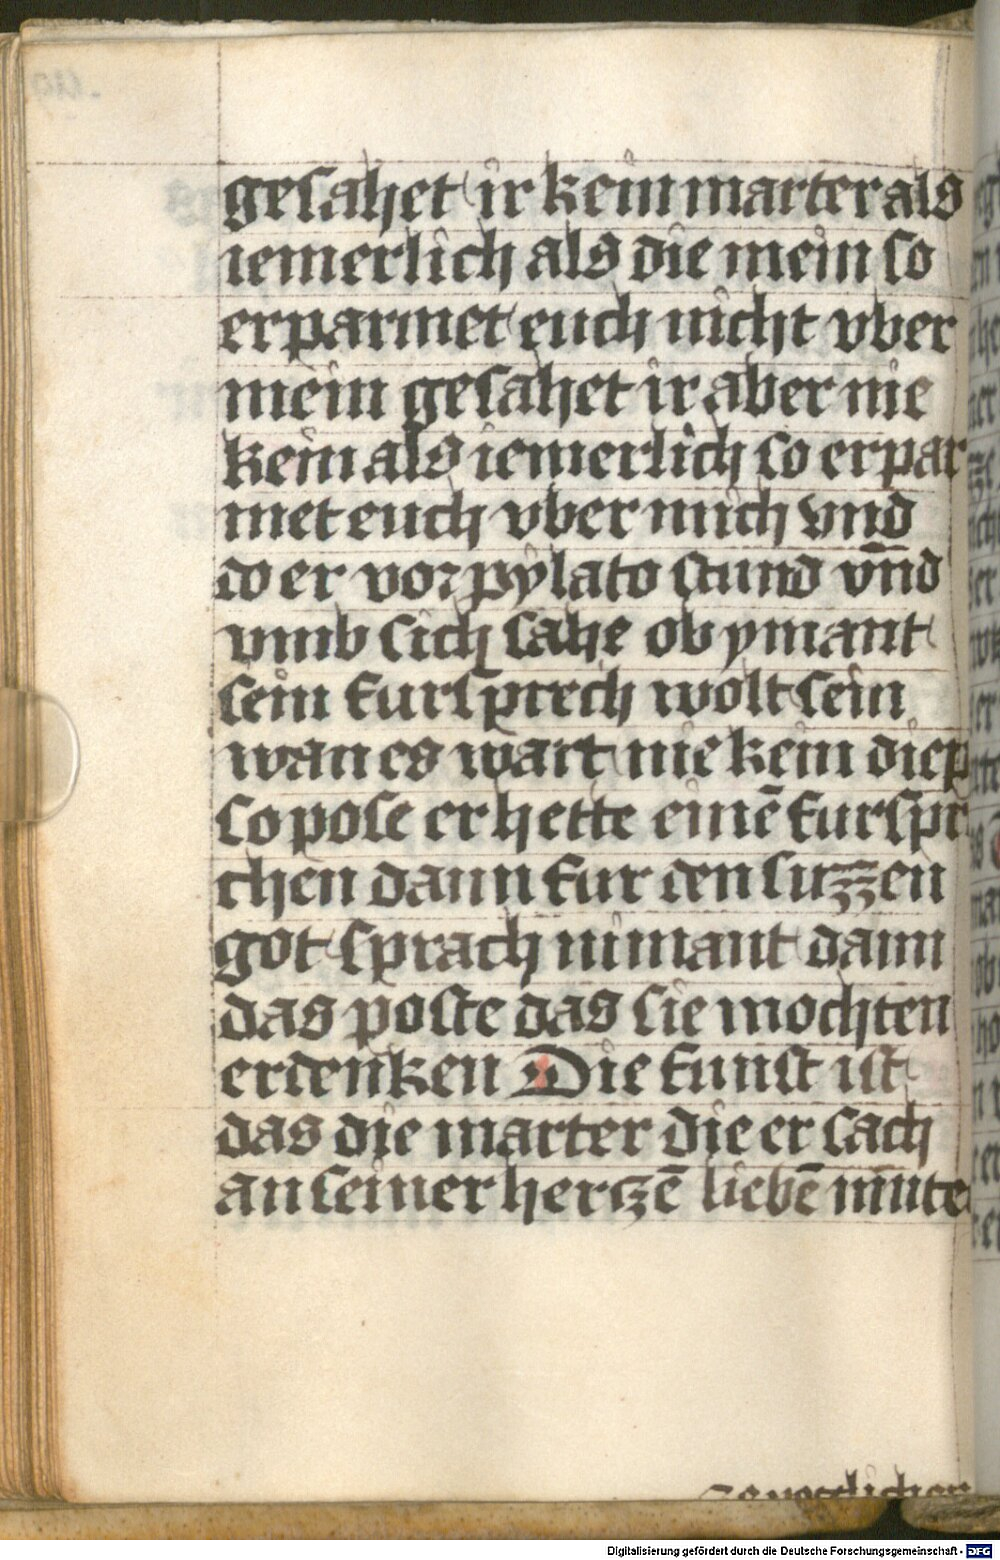 gesahet ir kein marter als
iemerlich als die mein so
erparmet euch nicht vber
mein gesahet ir aber nie
kein als iemerlich so erpar
met euch vber mich vnd
do er vor pylato stund vn̄d
vmb sich sahe ob ymant
sein fursprech wolt sein
wan es wart nie kein diep
so pose er hette einē furspre
chen dann fur den suzzen
got sprach nimant dann
das poste das sie mochten
erdenken Die funft ist
das die marter die er sach
an seiner herczē liebē muter
Digitalisierung gefördert durch die Deutsche Forschungsgemeinschaft - DFG